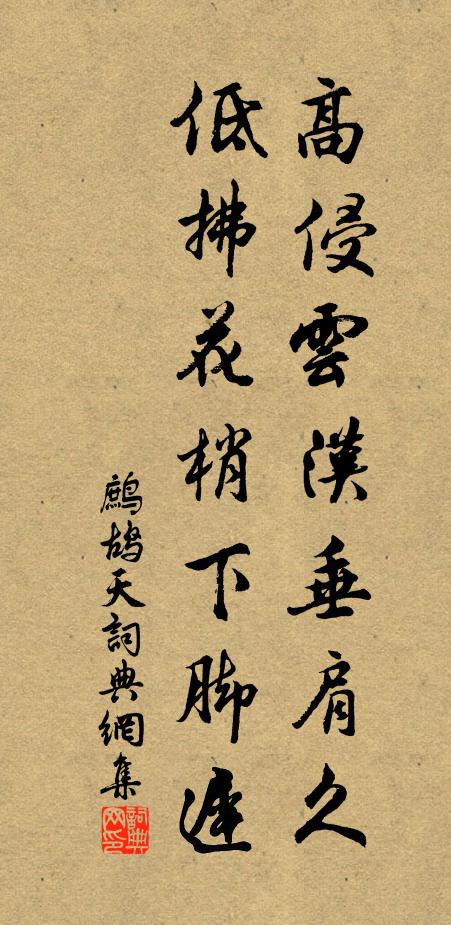 高侵雲漢垂肩久
低拂花梢下脚遲
鷓鴣天詞典網集
詞典網印